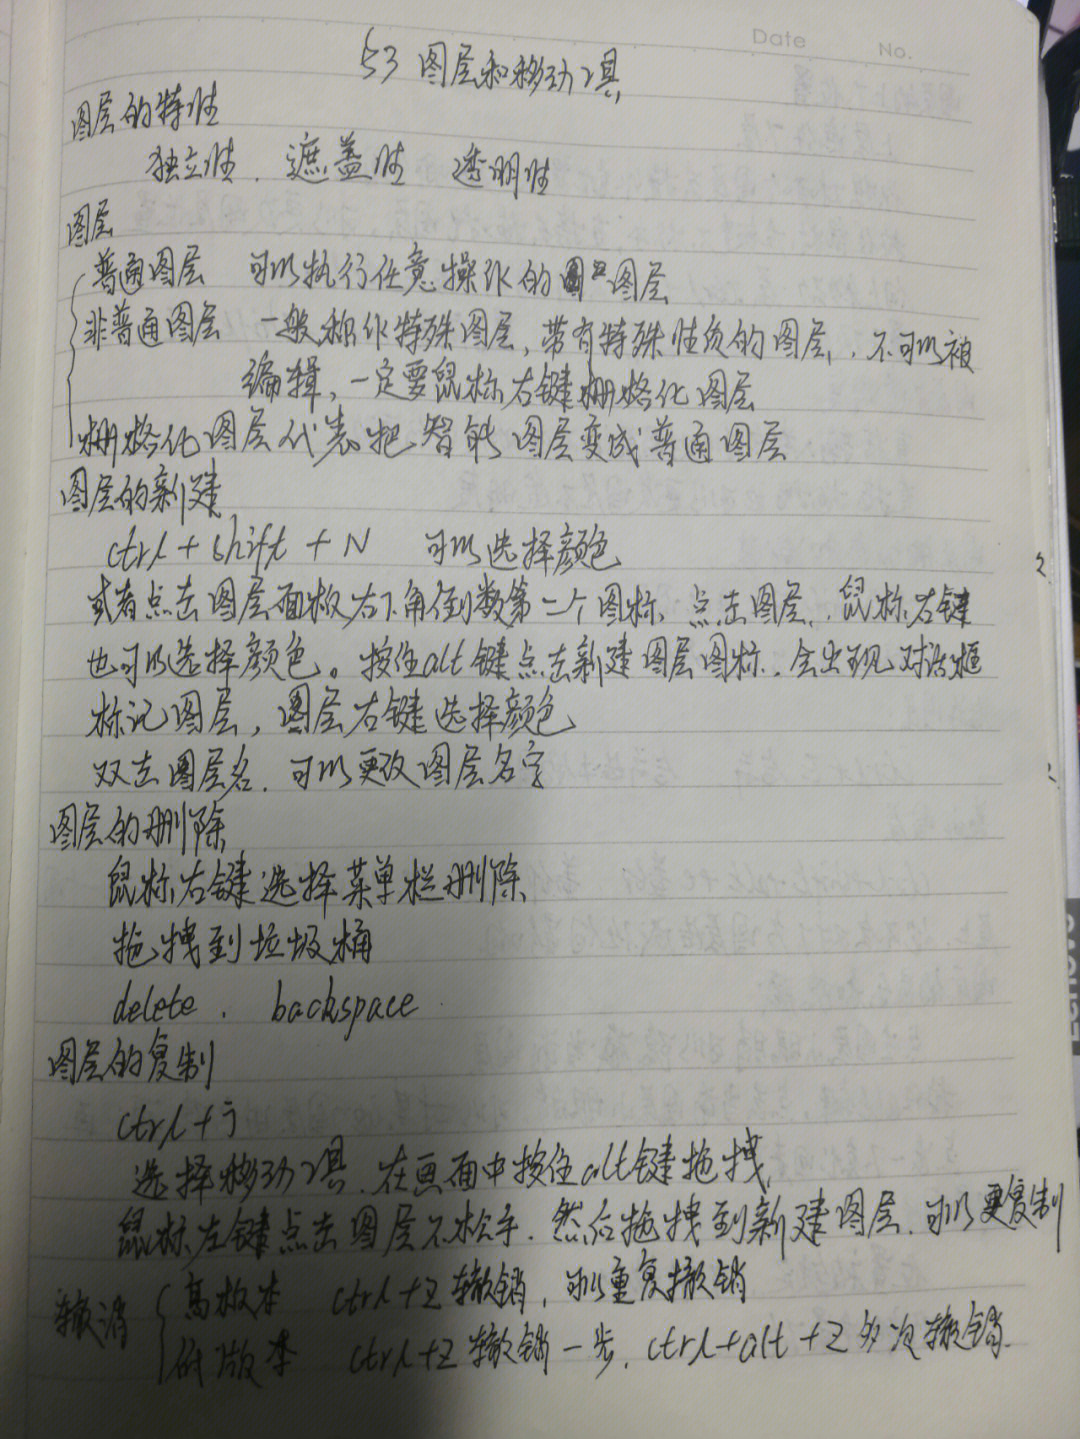 Date No.
§3 图层和移动工具
图层的特性
独立性、遮盖性 透明性
图层
普通图层 可以执行任意操作的图层
非普通图层 一般称作特殊图层,带有特殊性质的图层,不可以被
编辑,一定要鼠标右键栅格化图层
栅格化图层代表把智能图层变成普通图层
图层的新建
ctrl + shift + N 可以选择颜色
或者点击图层面板右下角倒数第二个图标,点击图层,鼠标右键
也可以选择颜色。按住alt键点击新建图层图标,会出现对话框
标记图层,图层右键选择颜色
双击图层名,可以更改图层名字
图层的删除
鼠标右键选择菜单栏删除
拖拽到垃圾桶
delete、backspace
图层的复制
ctrl+j
选择移动工具,在画面中按住alt键拖拽
鼠标左键点击图层不松手,然后拖拽到新建图层,可以复制
撤消
高版本 ctrl+z撤销,可以重复撤销
低版本 ctrl+z撤销一步,ctrl+alt+z多次撤销
lenovo